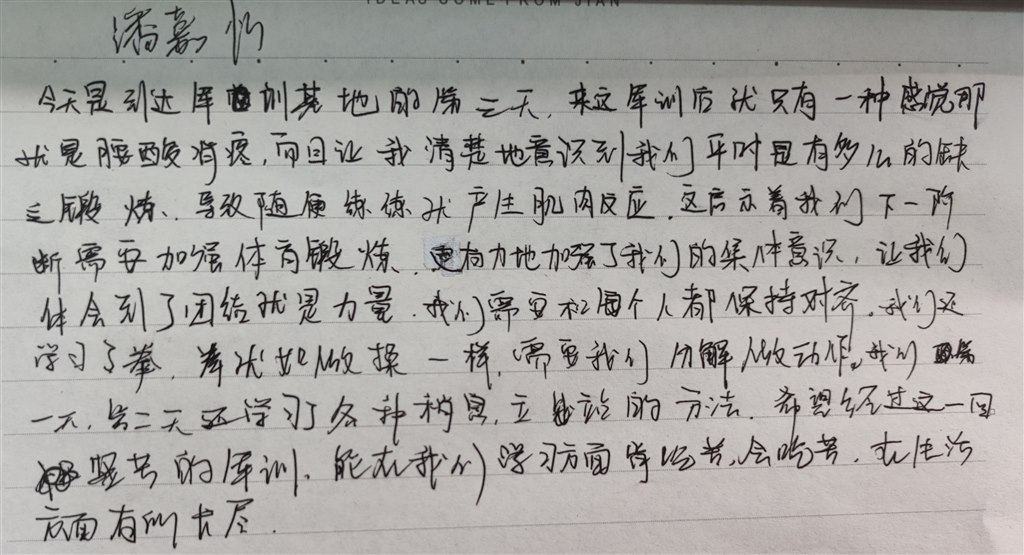 IDEAS COME FROM JIAN
潘嘉忻
今天是到达军训基地的第三天,来这军训后就只有一种感觉那
就是腰酸背疼,而且让我清楚地意识到我们平时是有多么的缺
乏锻炼、导致随便练练就产生肌肉反应,这启示着我们下一阶
断需要加强体育锻炼、更有力地加强了我们的集体意识,让我们
体会到了团结就是力量.我们需要和每个人都保持对齐,我们还
学习了拳,拳就如做操一样,需要我们分解做动作,我们第
一天,与二天还学习了各种稍息,立正的方法.希望经过这一回
艰苦的军训、能在我们学习方面能吃苦、会吃苦.在生活
方面有所长尽.